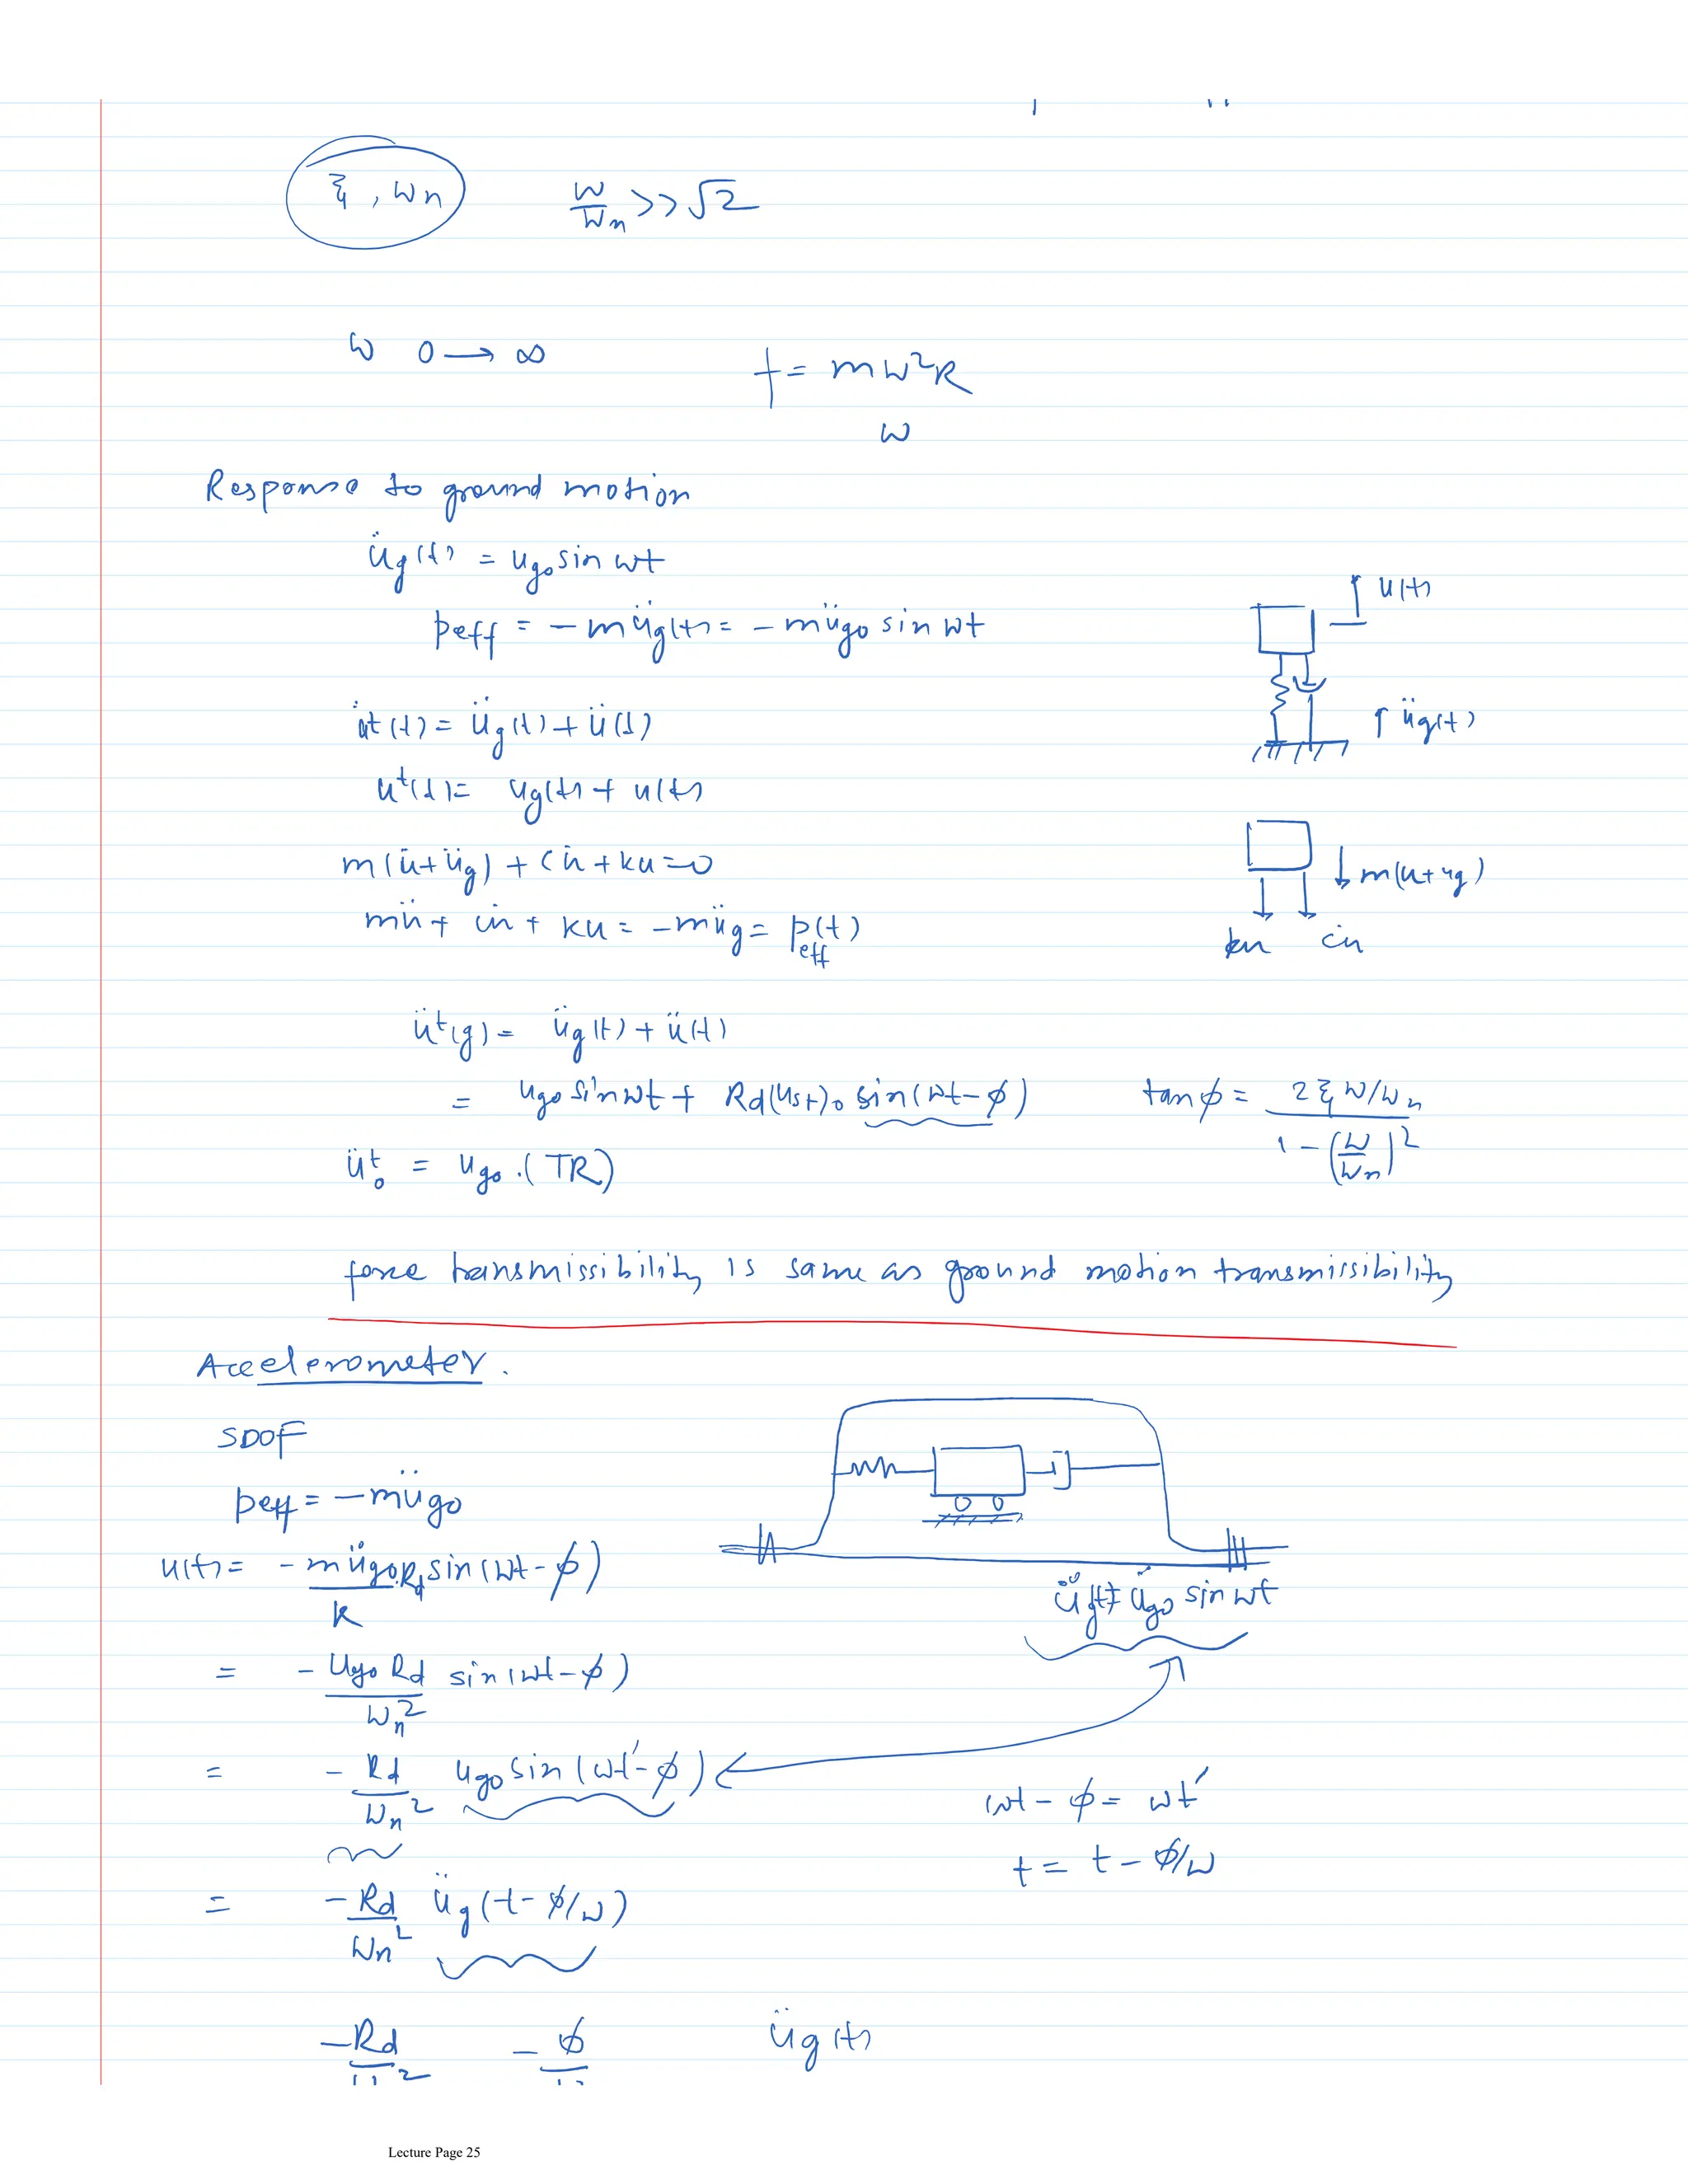 ξ, ωn    ω/ωn >> √2
ω 0 → ∞    f = mω²R
ω
Response to ground motion
üg(t) = ugo sin ωt
u(t)
peff = -müg(t) = -mügo sin ωt
üt(t) = üg(t) + ü(t)
üg(t)
ut(t) = ug(t) + u(t)
m(ü+üg) + cu̇ + ku = 0
m(u+ug)
mü + cu̇ + ku = -müg = peff(t)
ku  cu̇
üt(g) = üg(t) + ü(t)
= ugo sin ωt + Rd(ust)o sin(ωt-φ)    tanφ = 2ξ ω/ωn / 1-(ω/ωn)²
üot = ugo.(TR)
force transmissibility is same as ground motion transmissibility
Accelerometer.
SDOF
peff = -mügo
u(t) = -mügo.Rd/k sin(ωt-φ)
üg(t) = ügo sin ωt
= -ugo Rd/ωn² sin(ωt-φ)
= -Rd/ωn² ugo sin(ωt'-φ)
ωt - φ = ωt'
t = t - φ/ω
= -Rd/ωn² üg(t-φ/ω)
-Rd/ωn²   -φ/ω   üg(t)
Lecture Page 25